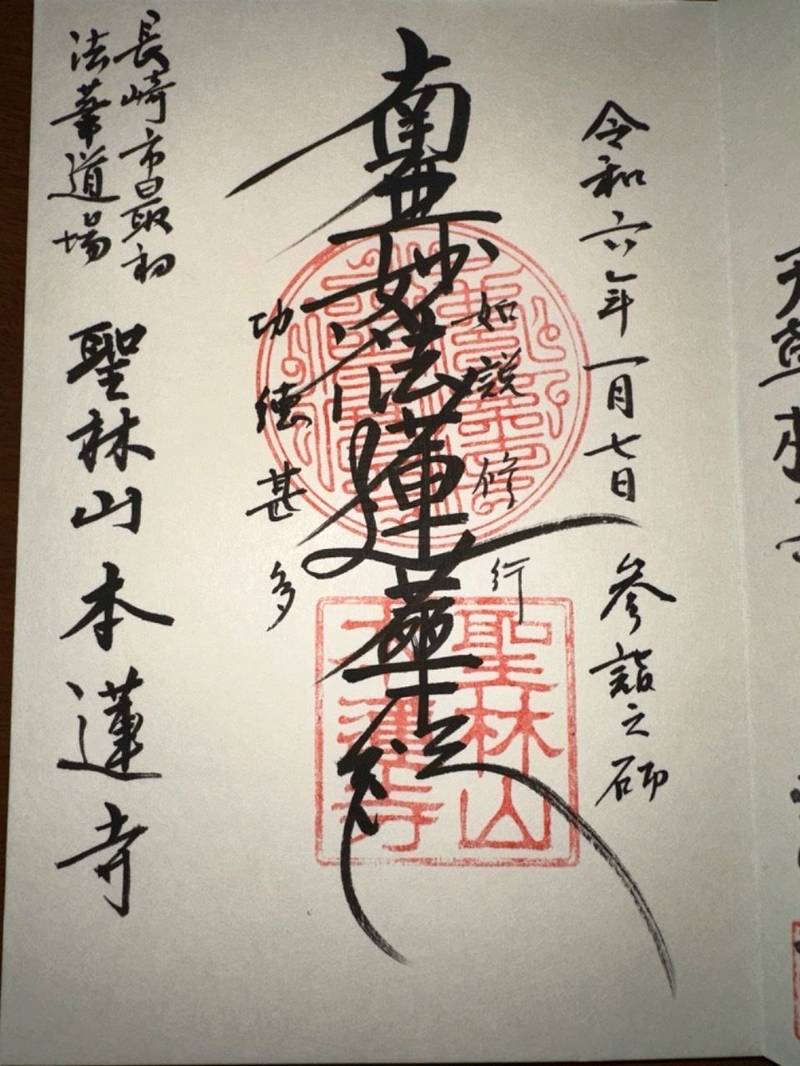 令和六年一月七日 参詣之砌
如説修行
南無妙法蓮華経
功徳甚多
長崎市最初
法華道場
聖林山本蓮寺
聖林山
本蓮寺